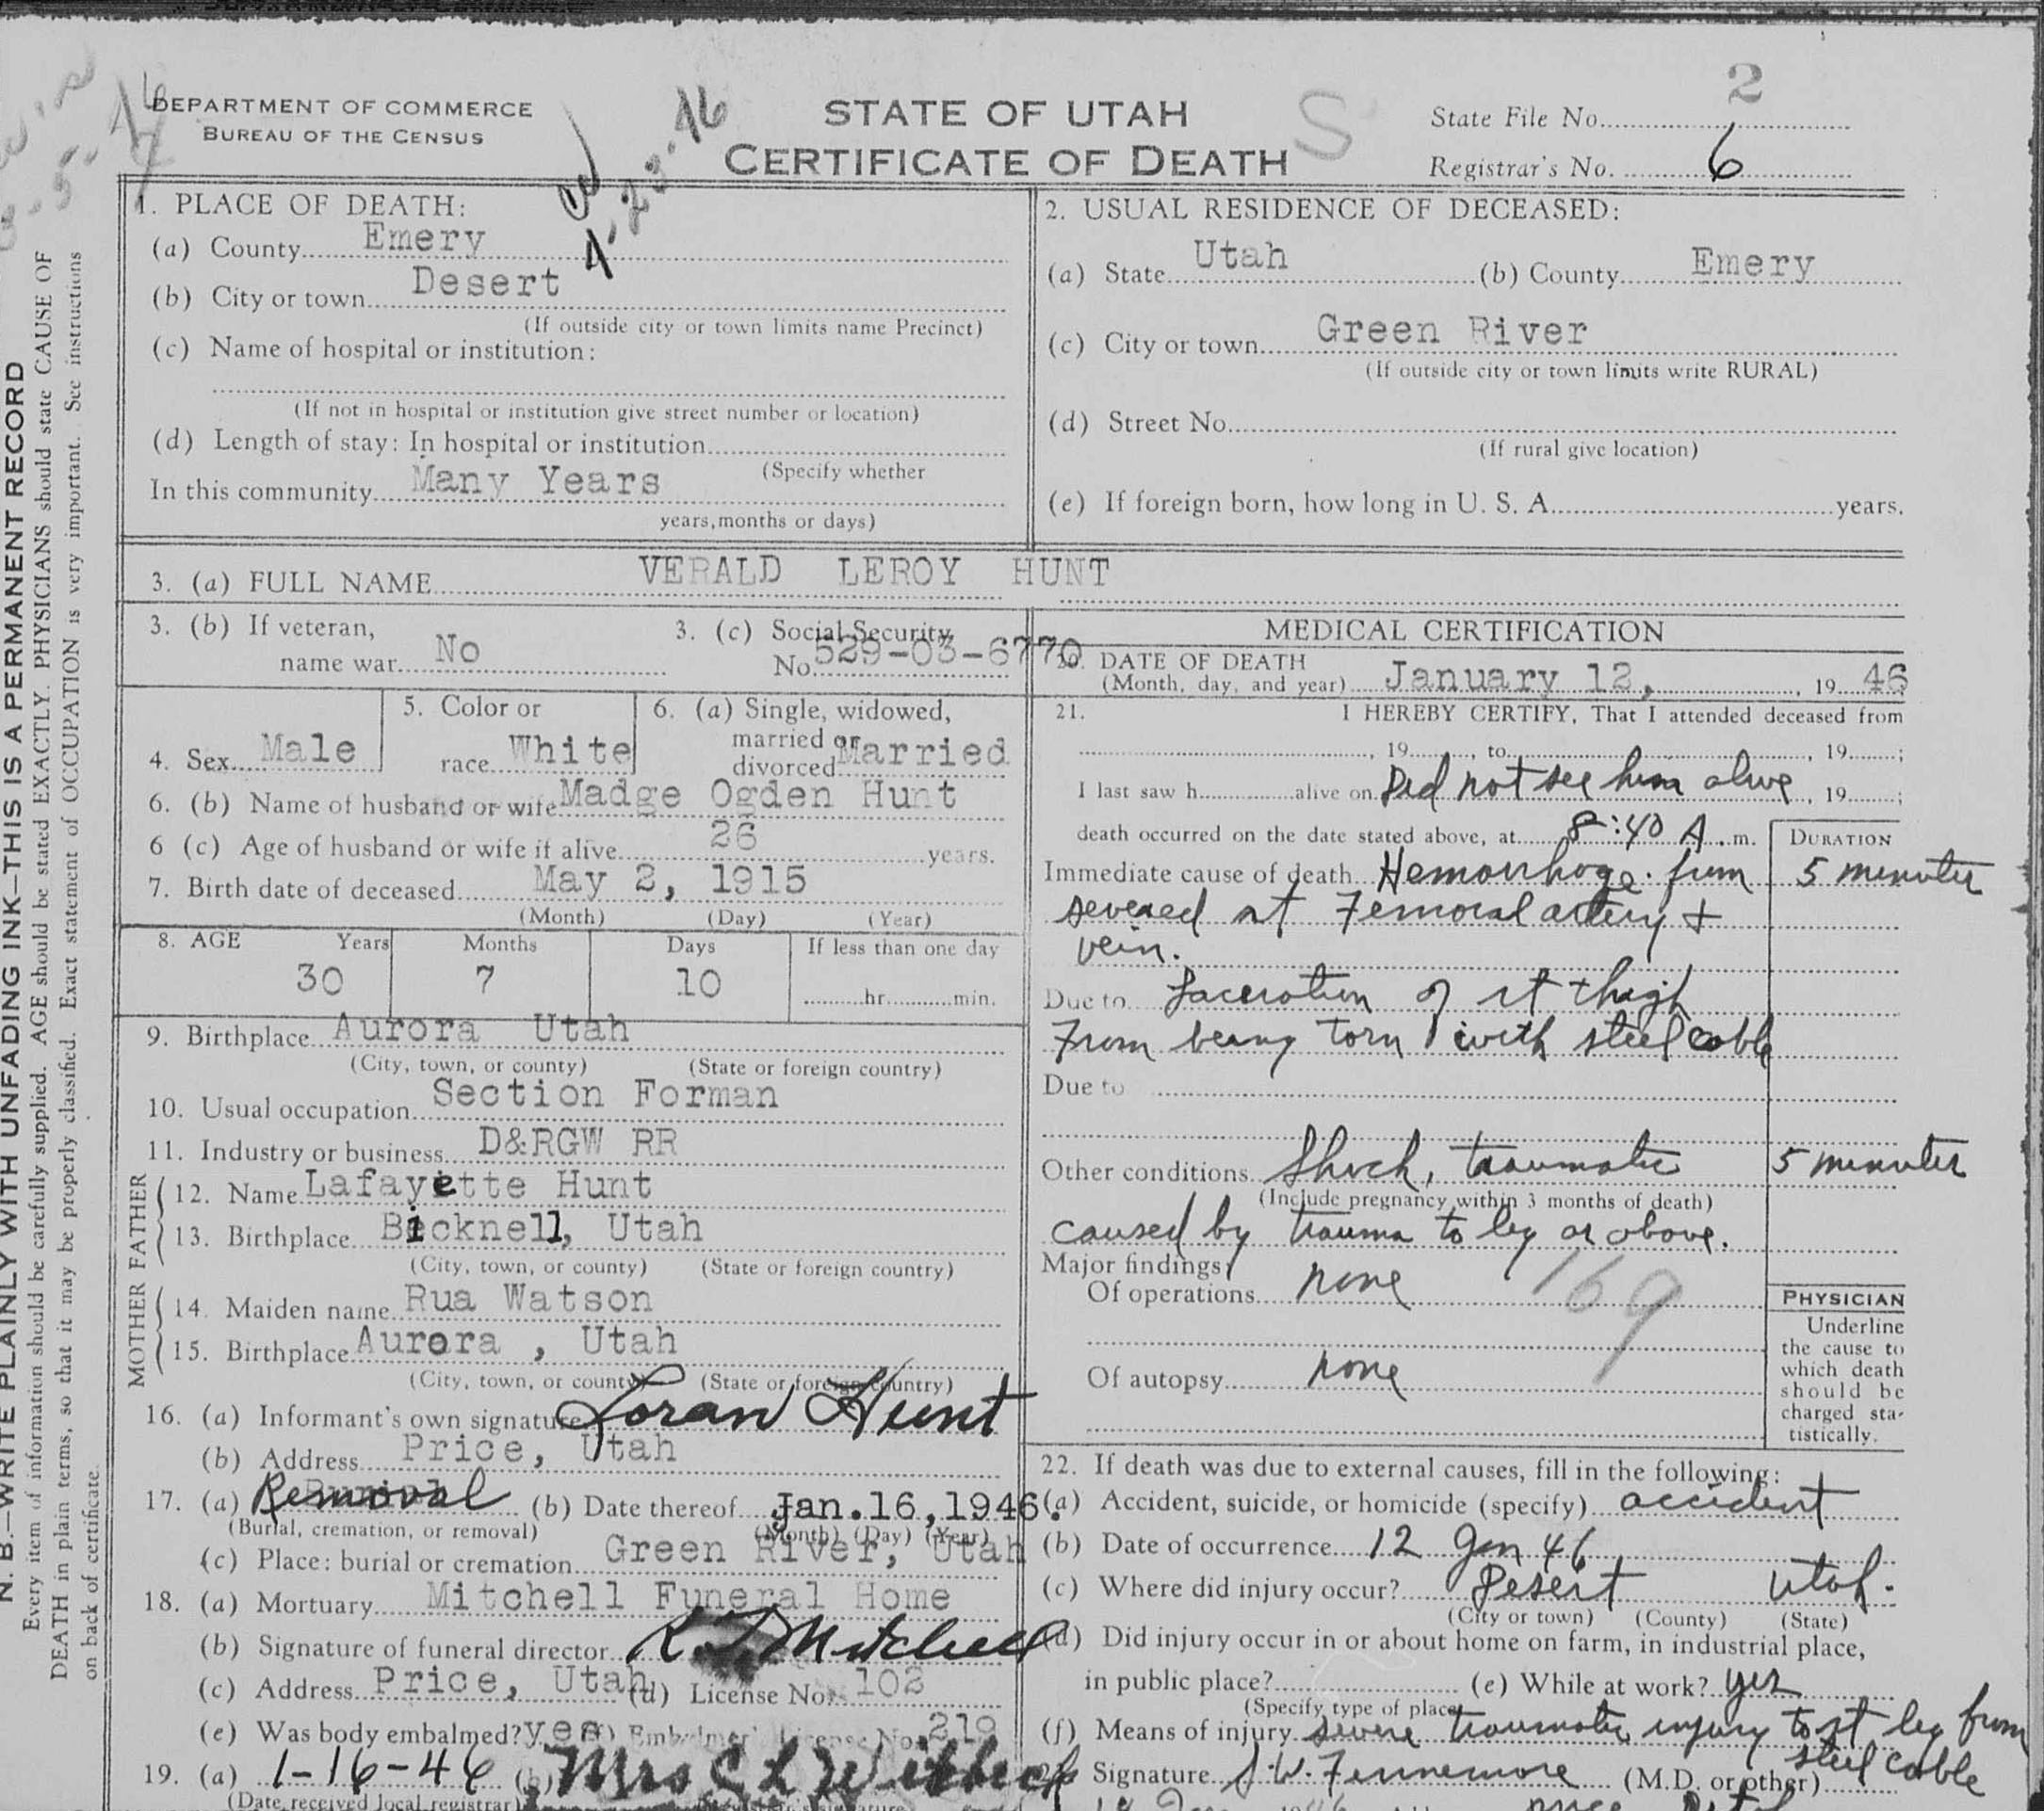 DEPARTMENT OF COMMERCE
BUREAU OF THE CENSUS
STATE OF UTAH
CERTIFICATE OF DEATH
S
4-23-46
State File No. 2
Registrar's No. 6
N. B.—WRITE PLAINLY WITH UNFADING INK—THIS IS A PERMANENT RECORD
Every item of information should be carefully supplied. AGE should be stated EXACTLY. PHYSICIANS should state CAUSE OF
DEATH in plain terms, so that it may be properly classified. Exact statement of OCCUPATION is very important. See instructions
on back of certificate.
1. PLACE OF DEATH:
(a) County Emery
(b) City or town Desert
(If outside city or town limits name Precinct)
(c) Name of hospital or institution:
(If not in hospital or institution give street number or location)
(d) Length of stay: In hospital or institution
(Specify whether
In this community Many Years
years, months or days)
2. USUAL RESIDENCE OF DECEASED:
(a) State Utah (b) County Emery
(c) City or town Green River
(If outside city or town limits write RURAL)
(d) Street No.
(If rural give location)
(e) If foreign born, how long in U. S. A. years.
3. (a) FULL NAME VERALD LEROY HUNT
3. (b) If veteran,
name war No
3. (c) Social Security
No. 529-03-6770
4. Sex Male
5. Color or
race White
6. (a) Single, widowed,
married or
divorced Married
6. (b) Name of husband or wife Madge Ogden Hunt
6 (c) Age of husband or wife if alive 26 years.
7. Birth date of deceased May 2, 1915
(Month) (Day) (Year)
8. AGE Years Months Days If less than one day
30 7 10 hr. min.
9. Birthplace Aurora Utah
(City, town, or county) (State or foreign country)
10. Usual occupation Section Forman
11. Industry or business D&RGW RR
FATHER
12. Name Lafayette Hunt
13. Birthplace Bicknell, Utah
(City, town, or county) (State or foreign country)
MOTHER
14. Maiden name Rua Watson
15. Birthplace Aurora , Utah
(City, town, or county) (State or foreign country)
16. (a) Informant's own signature Loran Hunt
(b) Address Price, Utah
17. (a) Removal (b) Date thereof Jan.16,1946.
(Burial, cremation, or removal) (Month) (Day) (Year)
(c) Place: burial or cremation Green River, Utah
18. (a) Mortuary Mitchell Funeral Home
(b) Signature of funeral director Mitchell
(c) Address Price, Utah (d) License No. 102
(e) Was body embalmed? yes (f) Embalmer's License No. 219
19. (a) 1-16-46 (b) Mrs
(Date received local registrar)
MEDICAL CERTIFICATION
20. DATE OF DEATH
(Month, day, and year) January 12, , 19 46
21. I HEREBY CERTIFY, That I attended deceased from
, 19 , to , 19 ;
I last saw h alive on Did not see him alive , 19 ;
death occurred on the date stated above, at 8:40 A. m.
DURATION
Immediate cause of death Hemorrhage from 5 minutes
severed rt Femoral artery +
vein.
Due to Laceration of rt thigh
From being torn with steel cable
Due to
Other conditions Shock, traumatic 5 minutes
(Include pregnancy within 3 months of death)
caused by trauma to leg as above.
Major findings:
Of operations none
169
Of autopsy none
PHYSICIAN
Underline
the cause to
which death
should be
charged sta-
tistically.
22. If death was due to external causes, fill in the following:
(a) Accident, suicide, or homicide (specify) accident
(b) Date of occurrence 12 Jan 46
(c) Where did injury occur? Desert Utah.
(City or town) (County) (State)
(d) Did injury occur in or about home on farm, in industrial place,
in public place? (e) While at work? yes
(Specify type of place)
(f) Means of injury severe traumatic injury to rt leg from
steel cable
Signature J.W. Fennemore (M.D. or other)